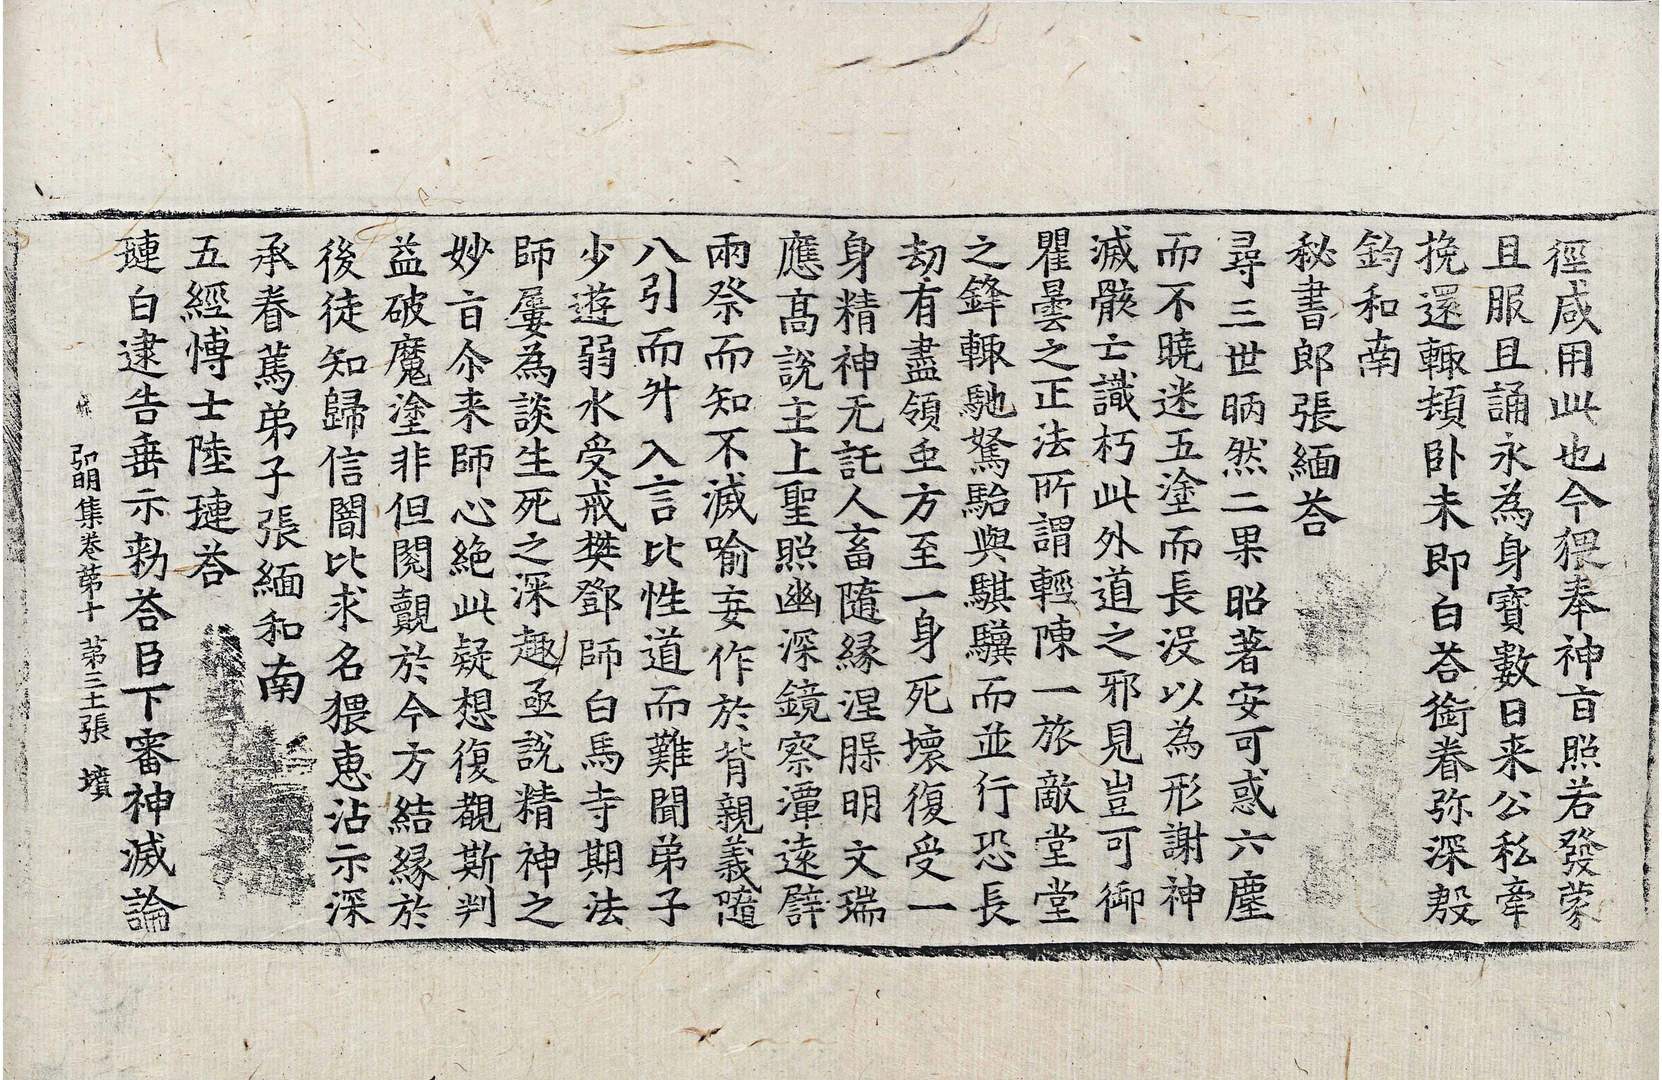 徑咸用此也今猥奉神㫖照若發蒙
且服且誦永為身寶數日来公私牽
挽還輙頰卧未即白荅銜眷弥深殷
鈞和南
秘書郎張緬荅
尋三世昞然二果昭著安可惑六塵
而不曉迷五塗而長没以為形謝神
滅骸亡識朽此外道之邪見豈可御
瞿曇之正法所謂輕陳一旅敵堂堂
之鋒輙馳駑駘與騏驥而並行恐長
劫有盡領𦤺方至一身死壞復受一
身精神无託人畜隨緣涅䐗明文瑞
應髙說主上聖照幽深鏡察潭遠譬
兩祭而知不滅喻妄作於背親義隨
八引而舛入言比性道而難聞弟子
少遊弱水受戒樊鄧師白馬寺期法
師屢為談生死之深趣亟說精神之
妙㫖尒来師心絶此疑想復覩斯判
益破魔塗非但閱覿於今方結緣於
後徒知歸信闇比求名猥惠沾示深
承眷篤弟子張緬和南
五經愽士陸璉荅
璉白逮告垂示勑荅臣下審神滅論
弘明集卷苐十 第三十張 墳